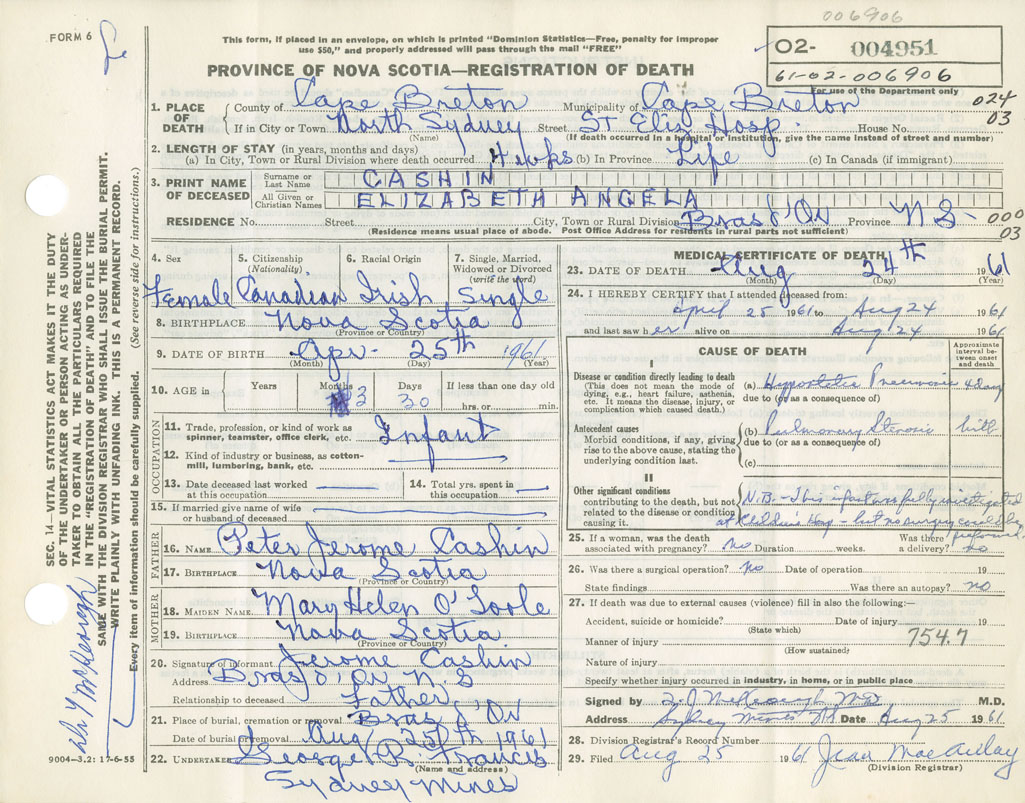 006906
FORM 6
This form, if placed in an envelope, on which is printed "Dominion Statistics—Free, penalty for improper
use $50," and properly addressed will pass through the mail "FREE"
02- 004951
61-02-006906
For use of the Department only
PROVINCE OF NOVA SCOTIA—REGISTRATION OF DEATH
024
03
1. PLACE OF DEATH { County of Cape Breton Municipality of Cape Breton
If in City or Town North Sydney Street St Eliz Hosp. House No.
(Name) (If death occurred in a hospital or institution, give the name instead of street and number)
2. LENGTH OF STAY (in years, months and days)
(a) In City, Town or Rural Division where death occurred 4 wks (b) In Province Life (c) In Canada (if immigrant)
3. PRINT NAME OF DECEASED { Surname or Last Name CASHIN
All Given or Christian Names ELIZABETH ANGELA
RESIDENCE No. Street City, Town or Rural Division Bras d'Or Province N S- 000
03
(Residence means usual place of abode. Post Office Address for residents in rural parts not sufficient)
4. Sex 5. Citizenship (Nationality) 6. Racial Origin 7. Single, Married, Widowed or Divorced (write the word)
Female Canadian Irish Single
8. BIRTHPLACE Nova Scotia
(Province or Country)
9. DATE OF BIRTH Apr- 25th 1961
(Month) (Day) (Year)
10. AGE in Years Months Days If less than one day old
3 30 hrs. or min.
OCCUPATION
11. Trade, profession, or kind of work as spinner, teamster, office clerk, etc. Infant
12. Kind of industry or business, as cotton-mill, lumbering, bank, etc.
13. Date deceased last worked at this occupation 14. Total yrs. spent in this occupation
15. If married give name of wife or husband of deceased
FATHER
16. NAME Peter Jerome Cashin
17. BIRTHPLACE Nova Scotia
(Province or Country)
MOTHER
18. MAIDEN NAME Mary Helen O'Toole
19. BIRTHPLACE Nova Scotia
(Province or Country)
20. Signature of informant Jerome Cashin
Address Bras d'Or N.S
Relationship to deceased Father
21. Place of burial, cremation or removal Bras d'Or
Date of burial or removal Aug 25th 1961
22. UNDERTAKER George R. Francis
(Name and address)
Sydney Mines
MEDICAL CERTIFICATE OF DEATH
23. DATE OF DEATH Aug 24th 1961
(Month) (Day) (Year)
24. I HEREBY CERTIFY that I attended deceased from:
April 25 1961 to Aug 24 1961
and last saw her alive on Aug 24 1961
CAUSE OF DEATH
Approximate interval between onset and death
I
Disease or condition directly leading to death
(This does not mean the mode of dying, e.g., heart failure, asthenia, etc. It means the disease, injury, or complication which caused death.)
(a) Hypostatic Pneumonia 4 days
due to (or as a consequence of)
Antecedent causes
Morbid conditions, if any, giving rise to the above cause, stating the underlying condition last.
(b) Pulmonary Stenosis birth
due to (or as a consequence of)
(c)
II
Other significant conditions
contributing to the death, but not related to the disease or condition causing it.
N.B.- This infant was fully investigated
at Children's Hosp - but no surgery could be
performed
25. If a woman, was the death associated with pregnancy? No Duration weeks. Was there a delivery? no
26. Was there a surgical operation? No Date of operation 19
State findings Was there an autopsy? no
27. If death was due to external causes (violence) fill in also the following:—
Accident, suicide or homicide? Date of injury 19
(State which)
Manner of injury 754.7
(How sustained)
Nature of injury
Specify whether injury occurred in industry, in home, or in public place
Signed by M.D.
Address Sydney Mines NS Date Aug 25 1961
28. Division Registrar's Record Number
29. Filed Aug 25 1961 Jean MacAulay
(Division Registrar)
SEC. 14—VITAL STATISTICS ACT MAKES IT THE DUTY
OF THE UNDERTAKER OR PERSON ACTING AS UNDER-
TAKER TO OBTAIN ALL THE PARTICULARS REQUIRED
IN THE "REGISTRATION OF DEATH" AND TO FILE THE
SAME WITH THE DIVISION REGISTRAR WHO SHALL ISSUE THE BURIAL PERMIT.
WRITE PLAINLY WITH UNFADING INK. THIS IS A PERMANENT RECORD.
Every item of information should be carefully supplied. (See reverse side for instructions.)
9004—3.2: 17-6-55